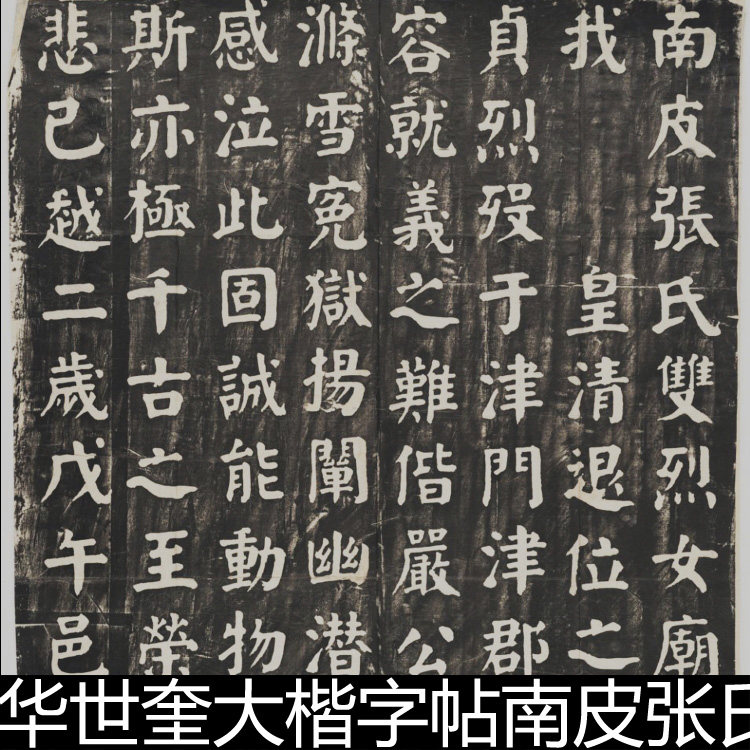 南皮張氏雙烈女廟
我皇清退位之
貞烈歿于津門津郡
容就義之難偕嚴公
滌雪冤獄揚闡幽潜
感泣此固誠能動物
斯亦極千古之至榮
悲己越二歲戊午邑
华世奎大楷字帖南皮张氏